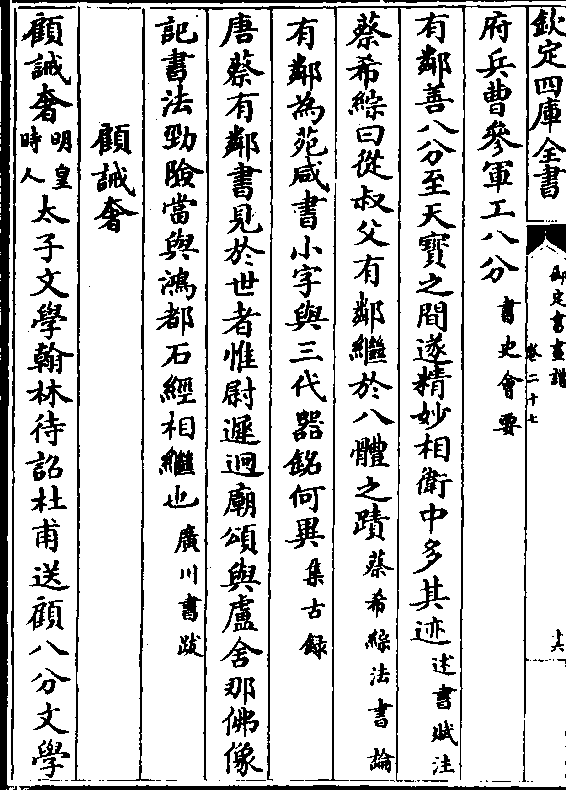 欽定四庫全書
御定書畫譜
卷二十七
十六
府兵曹參軍工八分書史會要
有鄰善八分至天寶之間遂精妙相衛中多其迹述書賦注
蔡希綜曰從叔父有鄰繼於八體之蹟蔡希綜法書論
有鄰為苑咸書小字與三代器銘何異集古録
唐蔡有鄰書見於世者惟尉遲迥廟頌與盧舍那佛像
記書法勁險當與鴻都石經相繼也廣川書跋
顧誡奢
顧誡奢明皇時人太子文學翰林待詔杜甫送顧八分文學